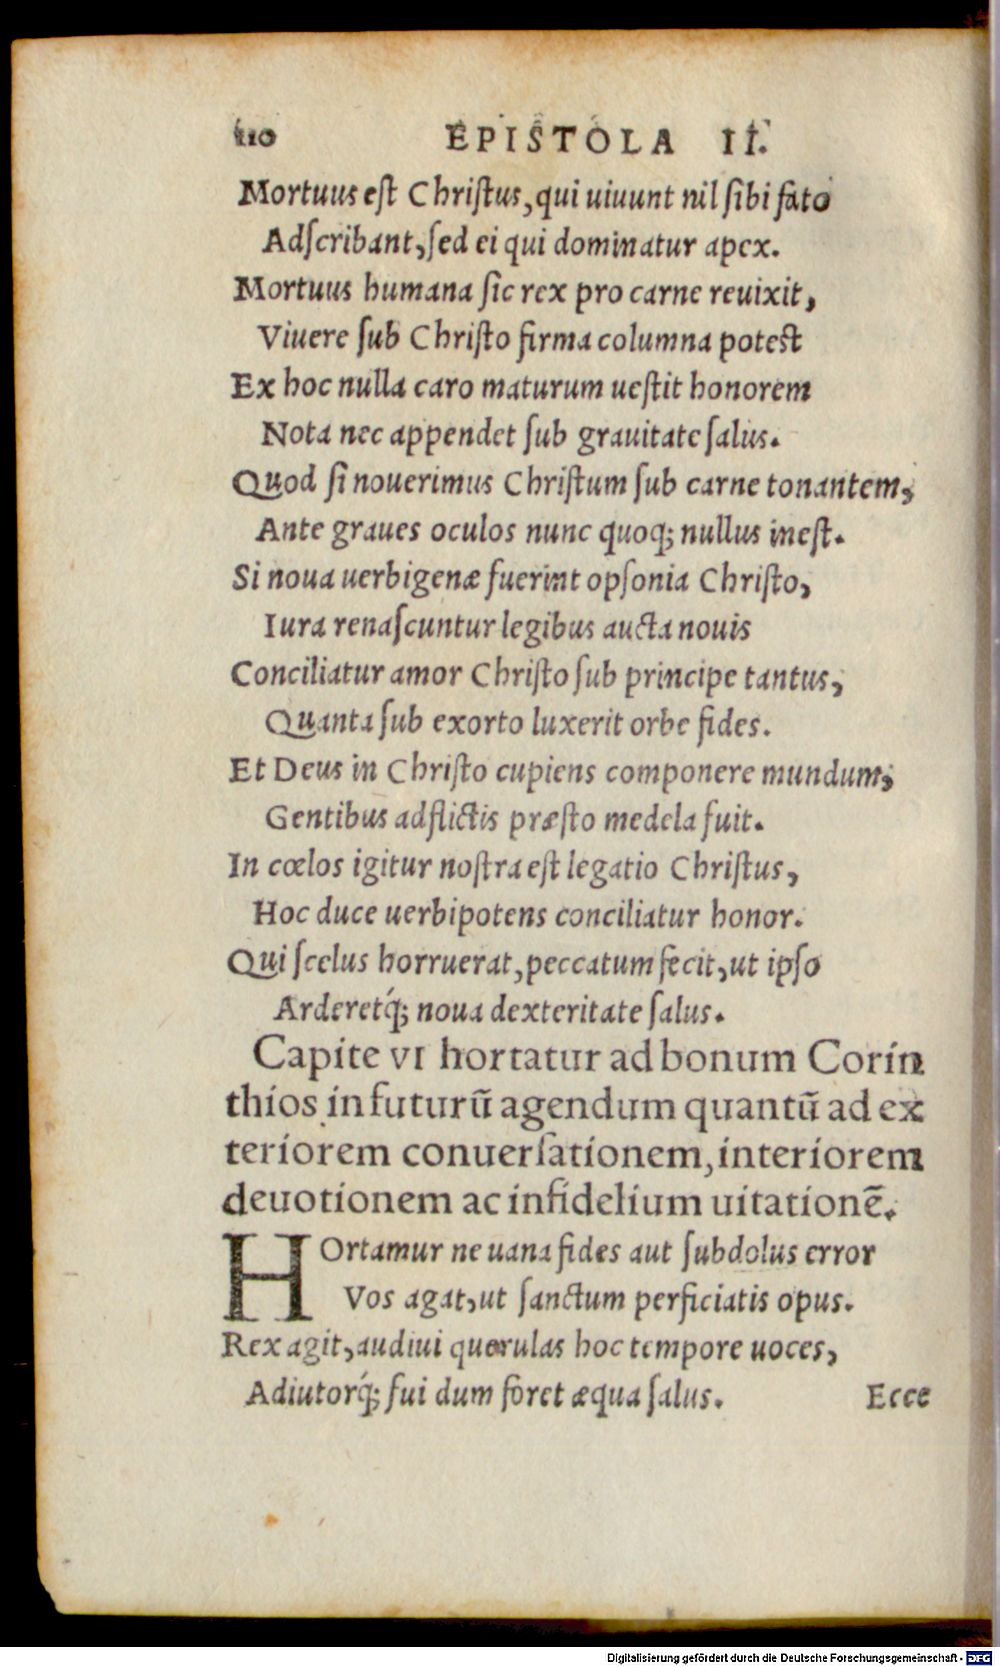 110 EPISTOLA II.
Mortuus est Christus, qui uiuunt nil sibi fato
Adſcribant, ſed ei qui dominatur apex.
Mortuus humana ſic rex pro carne reuixit,
Viuere ſub Chriſto firma columna poteſt
Ex hoc nulla caro maturum ueſtit honorem
Nota nec appendet ſub grauitate ſalus.
Quod ſi nouerimus Chriſtum ſub carne tonantem,
Ante graues oculos nunc quoq; nullus ineſt.
Si noua uerbigenæ fuerint opſonia Chriſto,
Iura renaſcuntur legibus aucta nouis
Conciliatur amor Chriſto ſub principe tantus,
Quanta ſub exorto luxerit orbe fides.
Et Deus in Chriſto cupiens componere mundum,
Gentibus adflictis præſto medela fuit.
In cœlos igitur noſtra eſt legatio Chriſtus,
Hoc duce uerbipotens conciliatur honor.
Qui ſcelus horruerat, peccatum fecit, ut ipſo
Arderetq́; noua dexteritate ſalus.
Capite VI hortatur ad bonum Corin
thios in futurũ agendum quantũ ad ex
teriorem conuerſationem, interiorem
deuotionem ac infidelium uitationẽ.
HOrtamur ne uana fides aut ſubdolus error
Vos agat, ut ſanctum perficiatis opus.
Rex agit, audiui querulas hoc tempore uoces,
Adiutorq́; fui dum foret æqua ſalus. Ecce
Digitalisierung gefördert durch die Deutsche Forschungsgemeinschaft - DFG